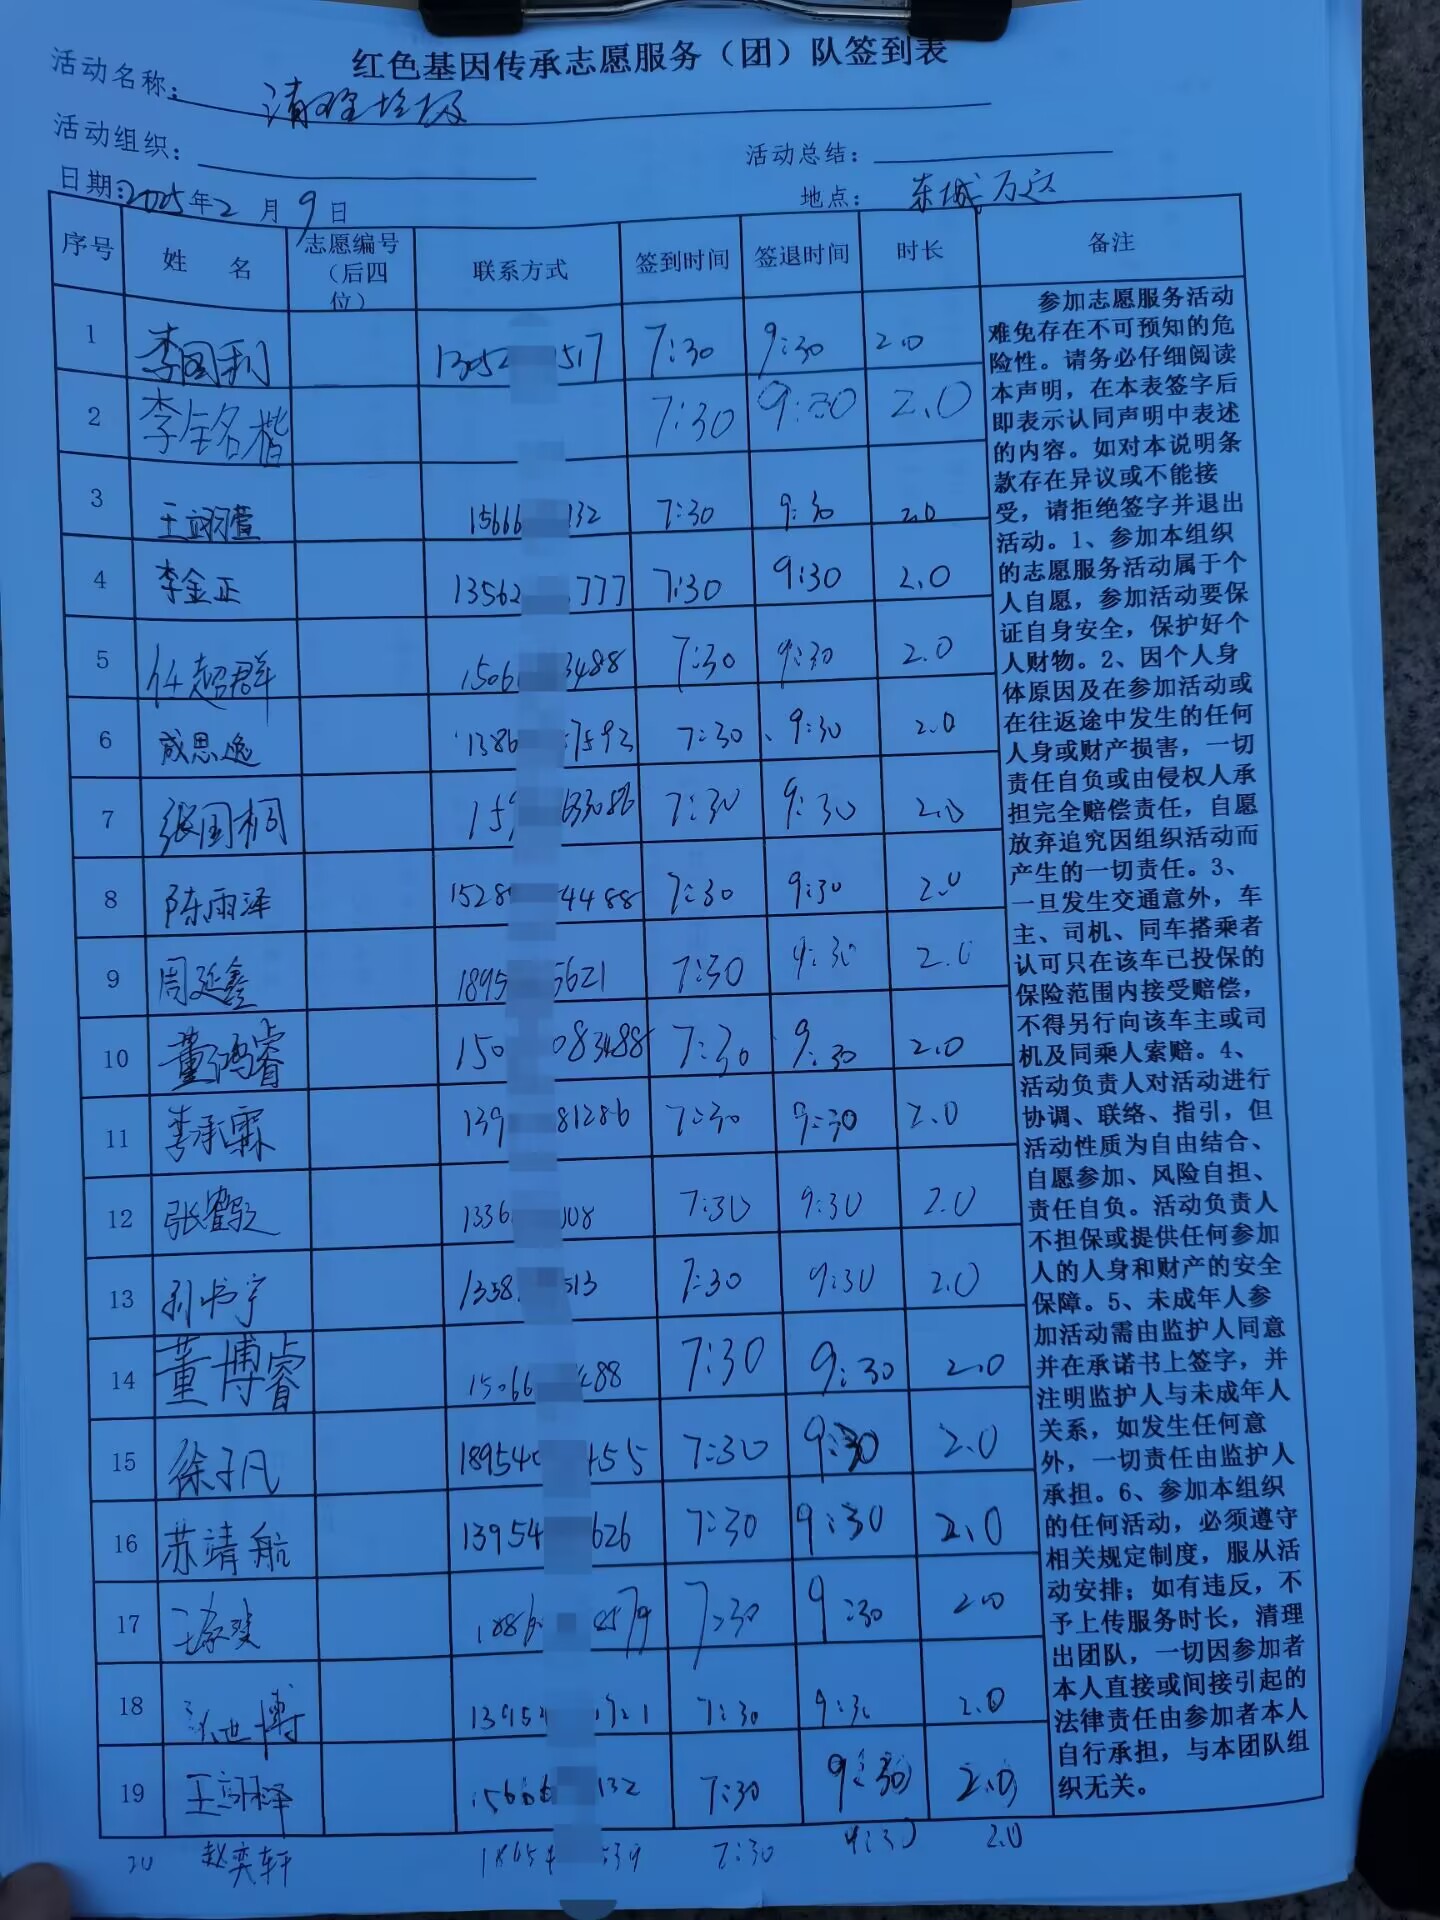 红色基因传承志愿服务（团）队签到表
活动名称：清理垃圾
活动组织：
活动总结：
日期：2025年2月9日
地点：东城万达
序号 姓名 志愿编号（后四位） 联系方式 签到时间 签退时间 时长 备注
1 李国利 13052 517 7:30 9:30 2.0
2 李铭楷 7:30 9:30 2.0
3 王翊萱 15666 132 7:30 9:30 2.0
4 李金正 13562 777 7:30 9:30 2.0
5 任超群 1506 3488 7:30 9:30 2.0
6 成思逸 1386 7592 7:30 9:30 2.0
7 张国桐 159 33086 7:30 9:30 2.0
8 陈雨泽 1528 4488 7:30 9:30 2.0
9 周延鑫 1895 5621 7:30 9:30 2.0
10 董鸿睿 150 083488 7:30 9:30 2.0
11 李承霖 139 81286 7:30 9:30 2.0
12 张 1336 108 7:30 9:30 2.0
13 孙书宇 1358 513 7:30 9:30 2.0
14 董博睿 15066 488 7:30 9:30 2.0
15 徐子凡 189540 455 7:30 9:30 2.0
16 苏靖航 13954 626 7:30 9:30 2.0
17 王 7:30 9:30 2.0
18 张世博 1395 1 7:30 9:30 2.0
19 王翊泽 15666 132 7:30 9:30 2.0
20 赵奕轩 1865 39 7:30 9:30 2.0
参加志愿服务活动
难免存在不可预知的危
险性。请务必仔细阅读
本声明，在本表签字后
即表示认同声明中表述
的内容。如对本说明条
款存在异议或不能接
受，请拒绝签字并退出
活动。1、参加本组织
的志愿服务活动属于个
人自愿，参加活动要保
证自身安全，保护好个
人财物。2、因个人身
体原因及在参加活动或
在往返途中发生的任何
人身或财产损害，一切
责任自负或由侵权人承
担完全赔偿责任，自愿
放弃追究因组织活动而
产生的一切责任。3、
一旦发生交通意外，车
主、司机、同车搭乘者
认可只在该车已投保的
保险范围内接受赔偿，
不得另行向该车主或司
机及同乘人索赔。4、
活动负责人对活动进行
协调、联络、指引，但
活动性质为自由结合、
自愿参加、风险自担、
责任自负。活动负责人
不担保或提供任何参加
人的人身和财产的安全
保障。5、未成年人参
加活动需由监护人同意
并在承诺书上签字，并
注明监护人与未成年人
关系，如发生任何意
外，一切责任由监护人
承担。6、参加本组织
的任何活动，必须遵守
相关规定制度，服从活
动安排；如有违反，不
予上传服务时长，清理
出团队，一切因参加者
本人直接或间接引起的
法律责任由参加者本人
自行承担，与本团队组
织无关。